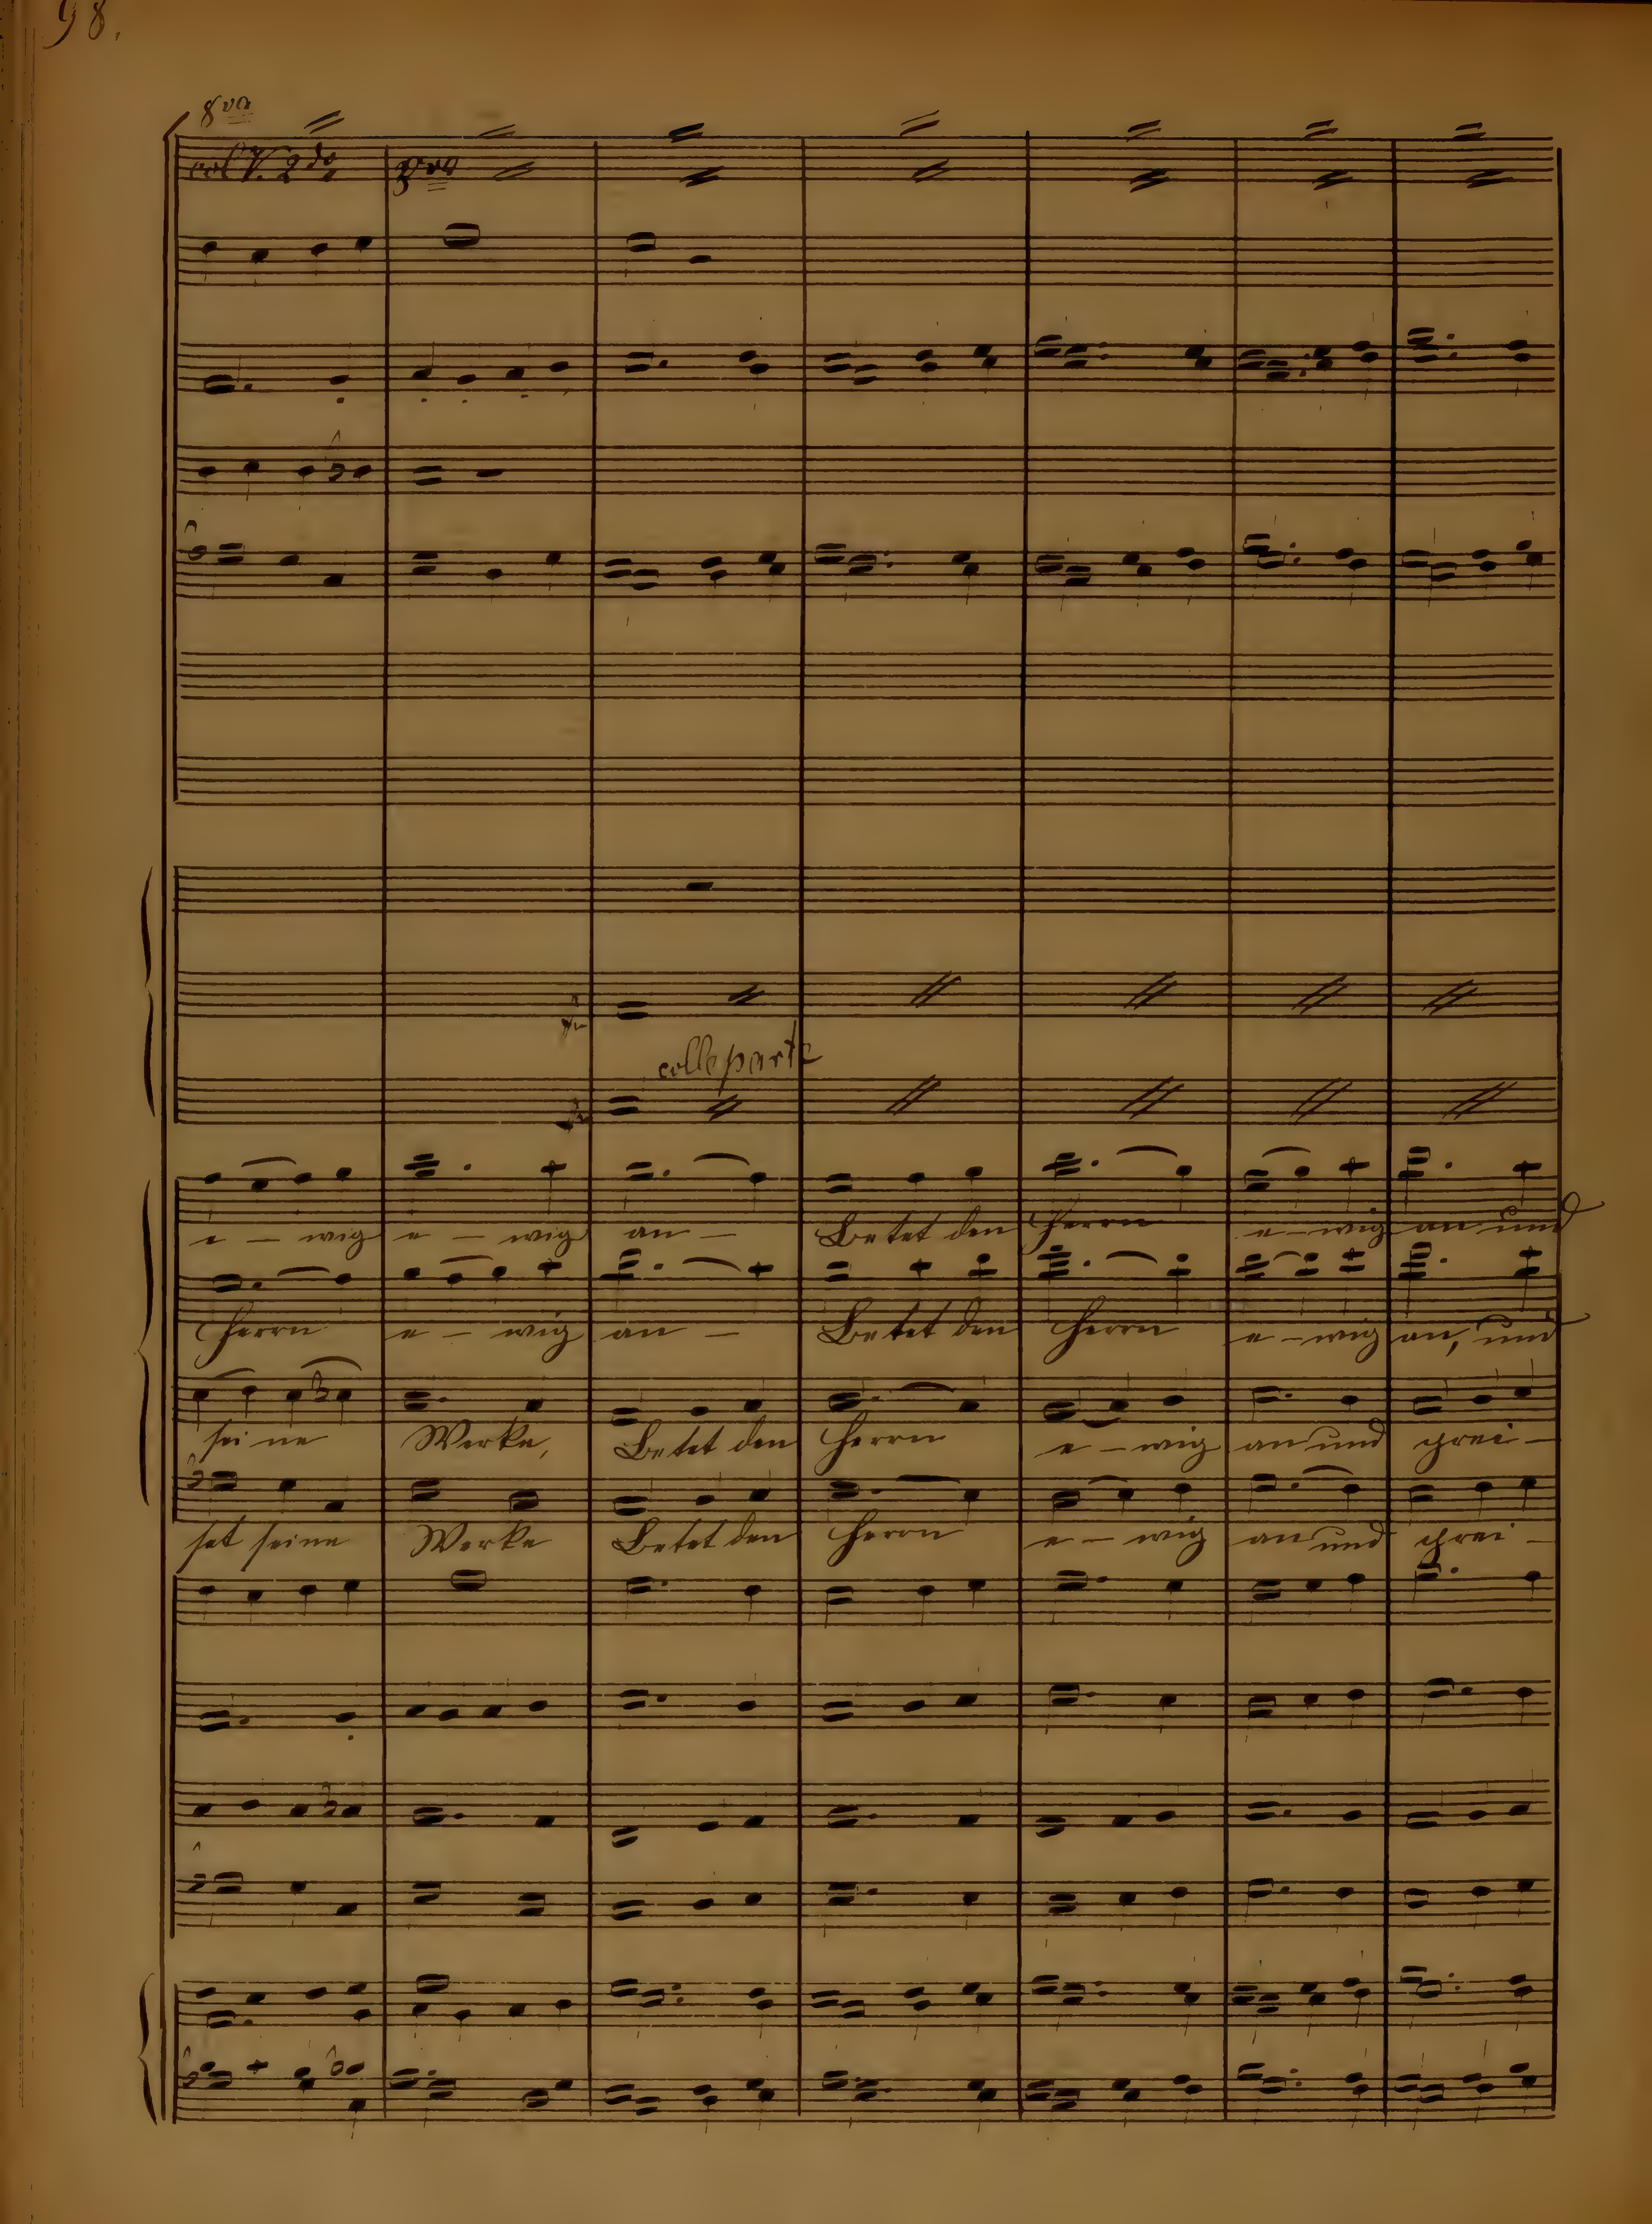 98.
8va
col V. 2do pro
colle parte
e - wig e - wig an - Betet den Herrn e - wig an und
Herrn e - wig an - Betet den Herrn e - wig an, und
sei ne Werke, Betet den Herrn e - wig an und prei -
set seine Werke Betet den Herrn e - wig an und prei -